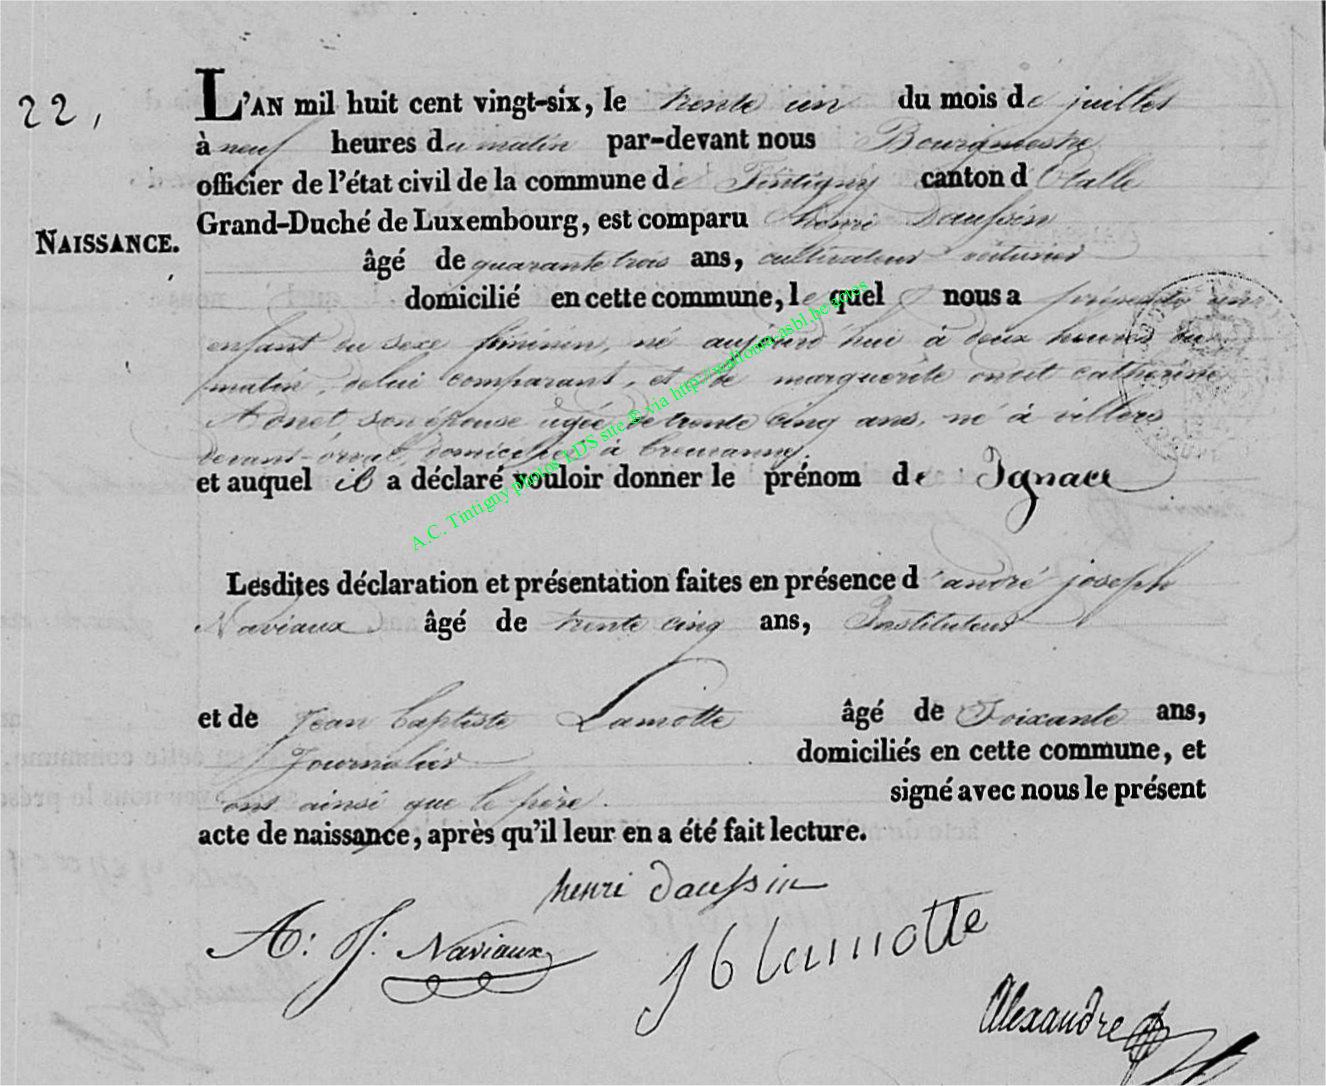 22,
L'AN mil huit cent vingt-six, le trente un du mois de juillet
à neuf heures du matin par-devant nous Bourgmestre
officier de l'état civil de la commune de Tintigny canton d'Etalle
Grand-Duché de Luxembourg, est comparu henri Daussin
NAISSANCE.
âgé de quarante trois ans, cultivateur voiturier
domicilié en cette commune, lequel nous a présenté un
enfant du sexe féminin, né aujourd'hui à deux heures du
matin, de lui comparant, et de marguerite catherine
Adnet son épouse agée de trente cinq ans, né à villers
devant-orval, domicilié à breuvanne.
et auquel il a déclaré vouloir donner le prénom de Ignace
A.C. Tintigny photos LDS site © via http://wallonia-asbl.be/actes
Lesdites déclaration et présentation faites en présence d'andré joseph
Naviaux âgé de trente cinq ans, Instituteur
et de Jean baptiste Lamotte âgé de Soixante ans,
Journalier domiciliés en cette commune, et
ont ainsi que le père. signé avec nous le présent
acte de naissance, après qu'il leur en a été fait lecture.
henri daussin
A: J: Naviaux
J b lamotte
Alexandre